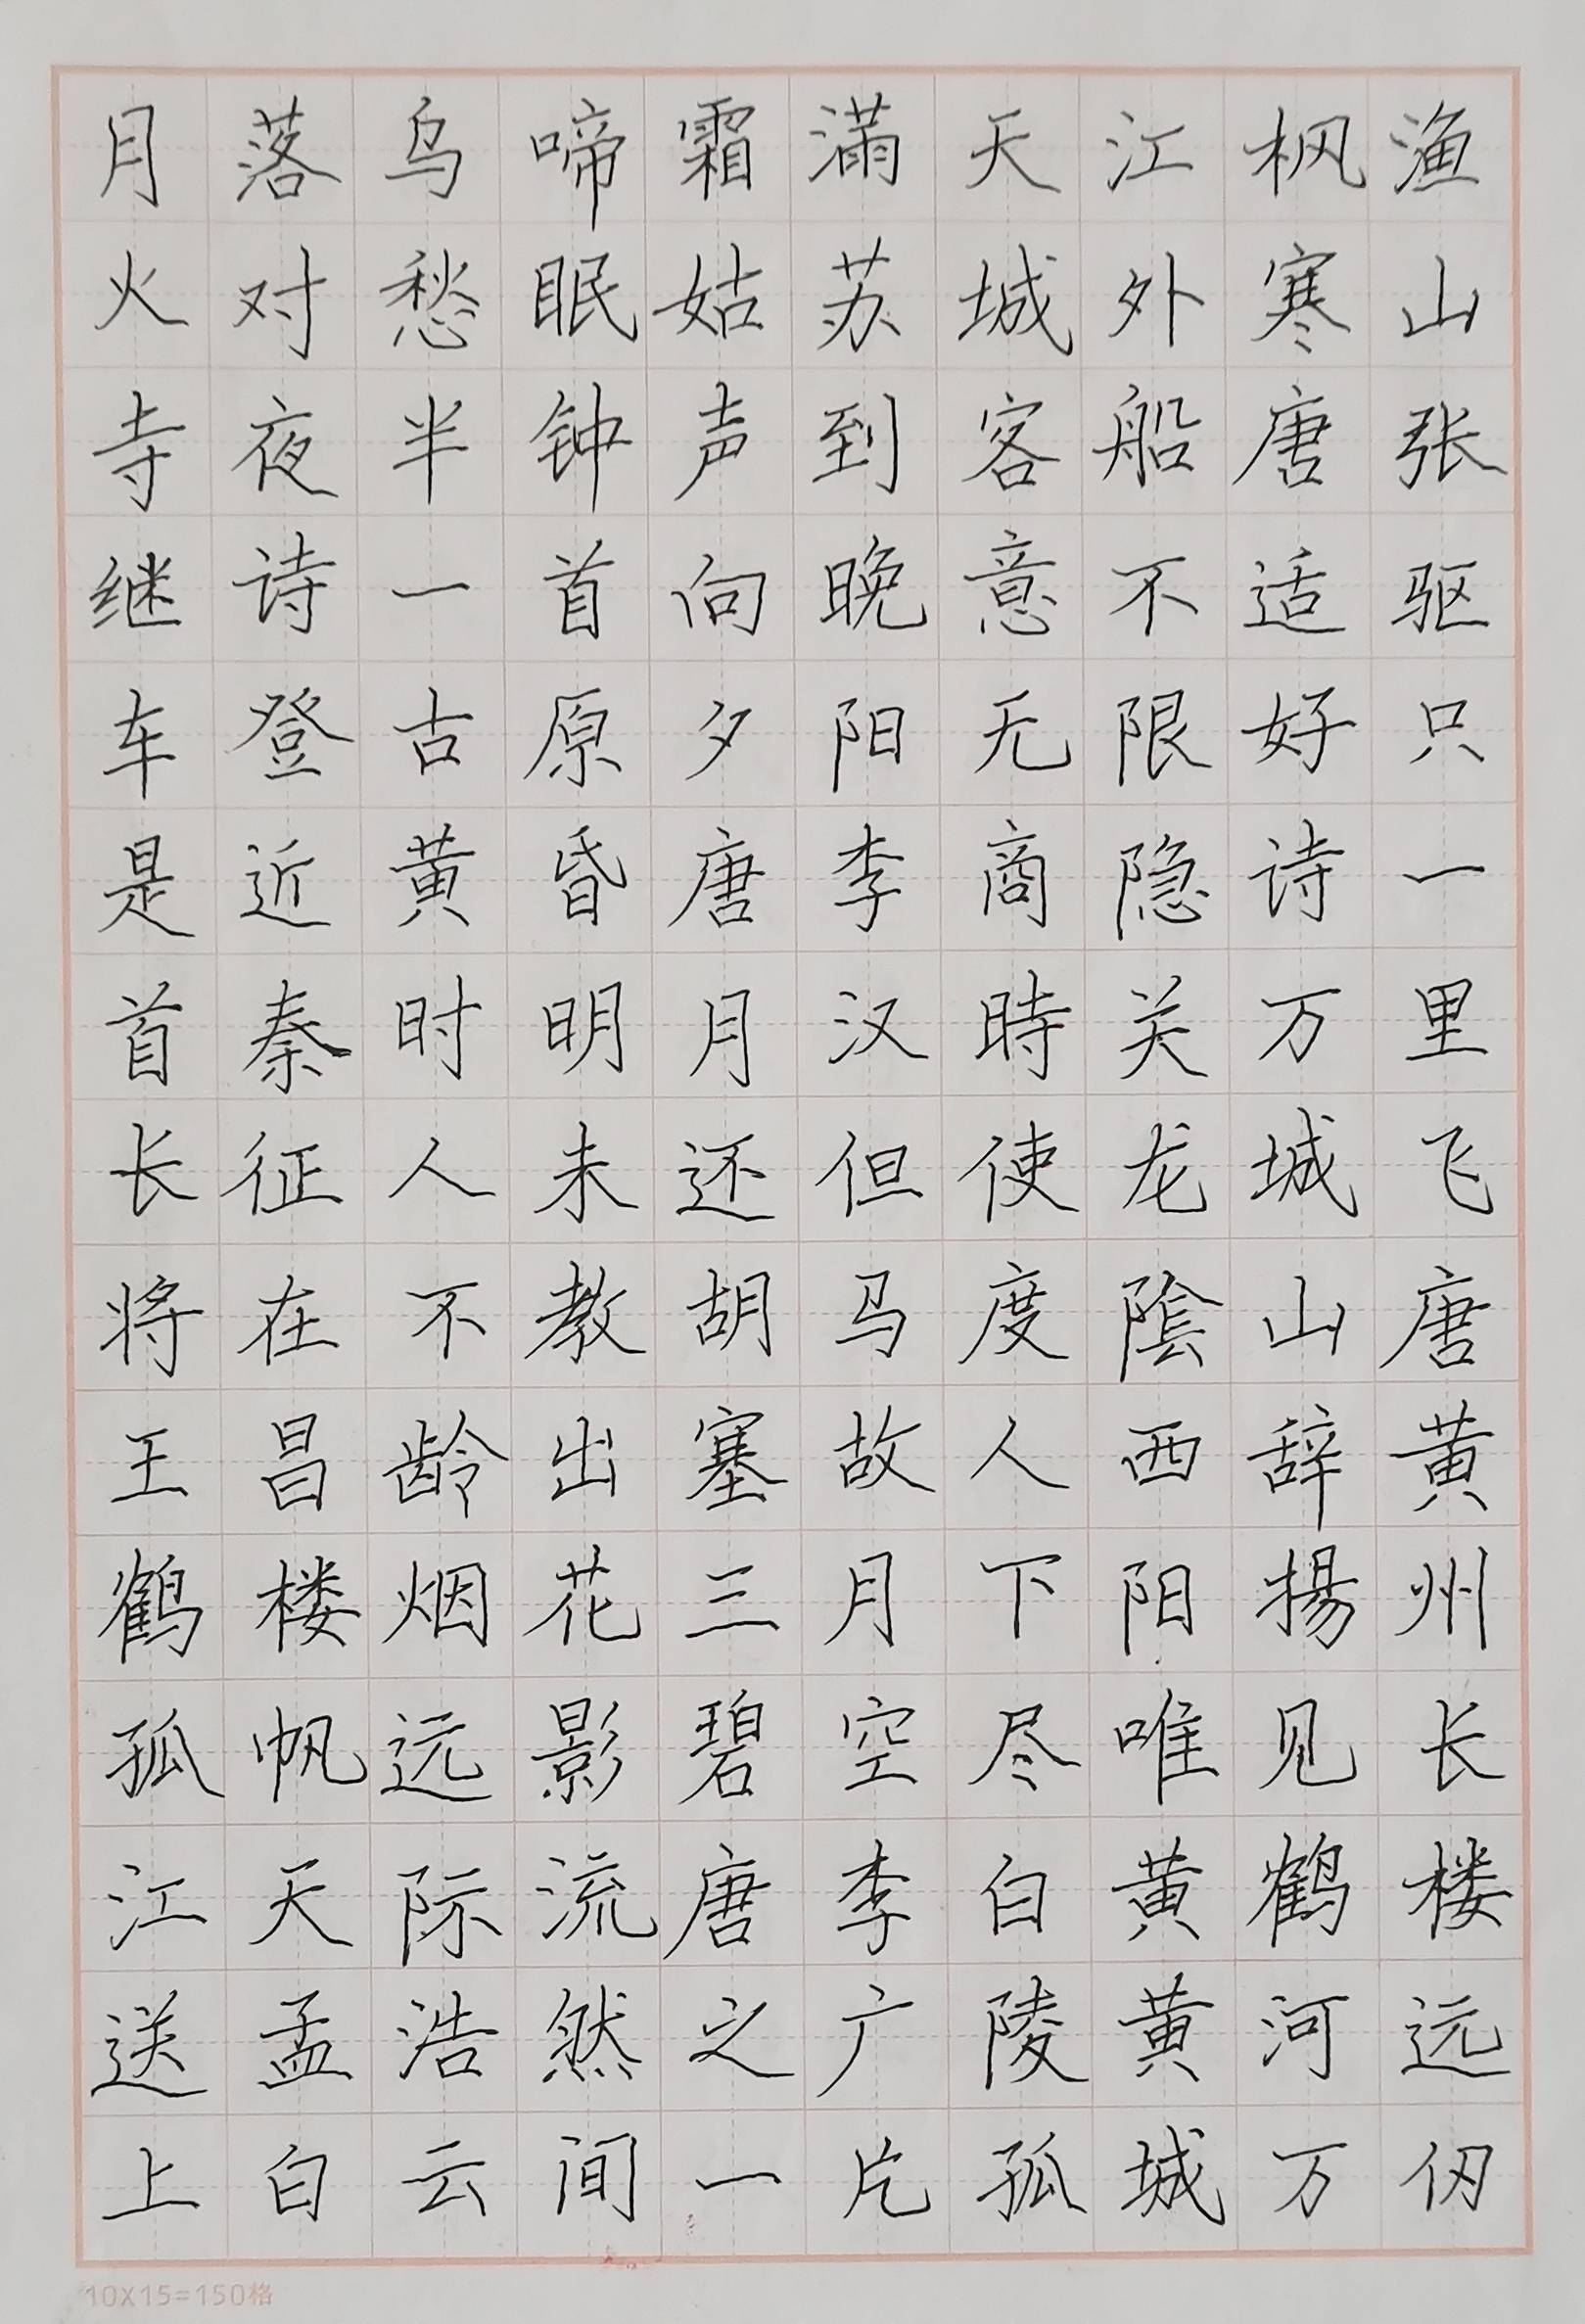 月落乌啼霜满天江枫渔
火对愁眠姑苏城外寒山
寺夜半钟声到客船唐张
继诗一首向晚意不适驱
车登古原夕阳无限好只
是近黄昏唐李商隐诗一
首秦时明月汉時关万里
长征人未还但使龙城飞
将在不教胡马度陰山唐
王昌龄出塞故人西辞黄
鹤楼烟花三月下阳揚州
孤帆远影碧空尽唯见长
江天际流唐李白黄鹤楼
送孟浩然之广陵黄河远
上白云间一片孤城万仞
10X15=150格